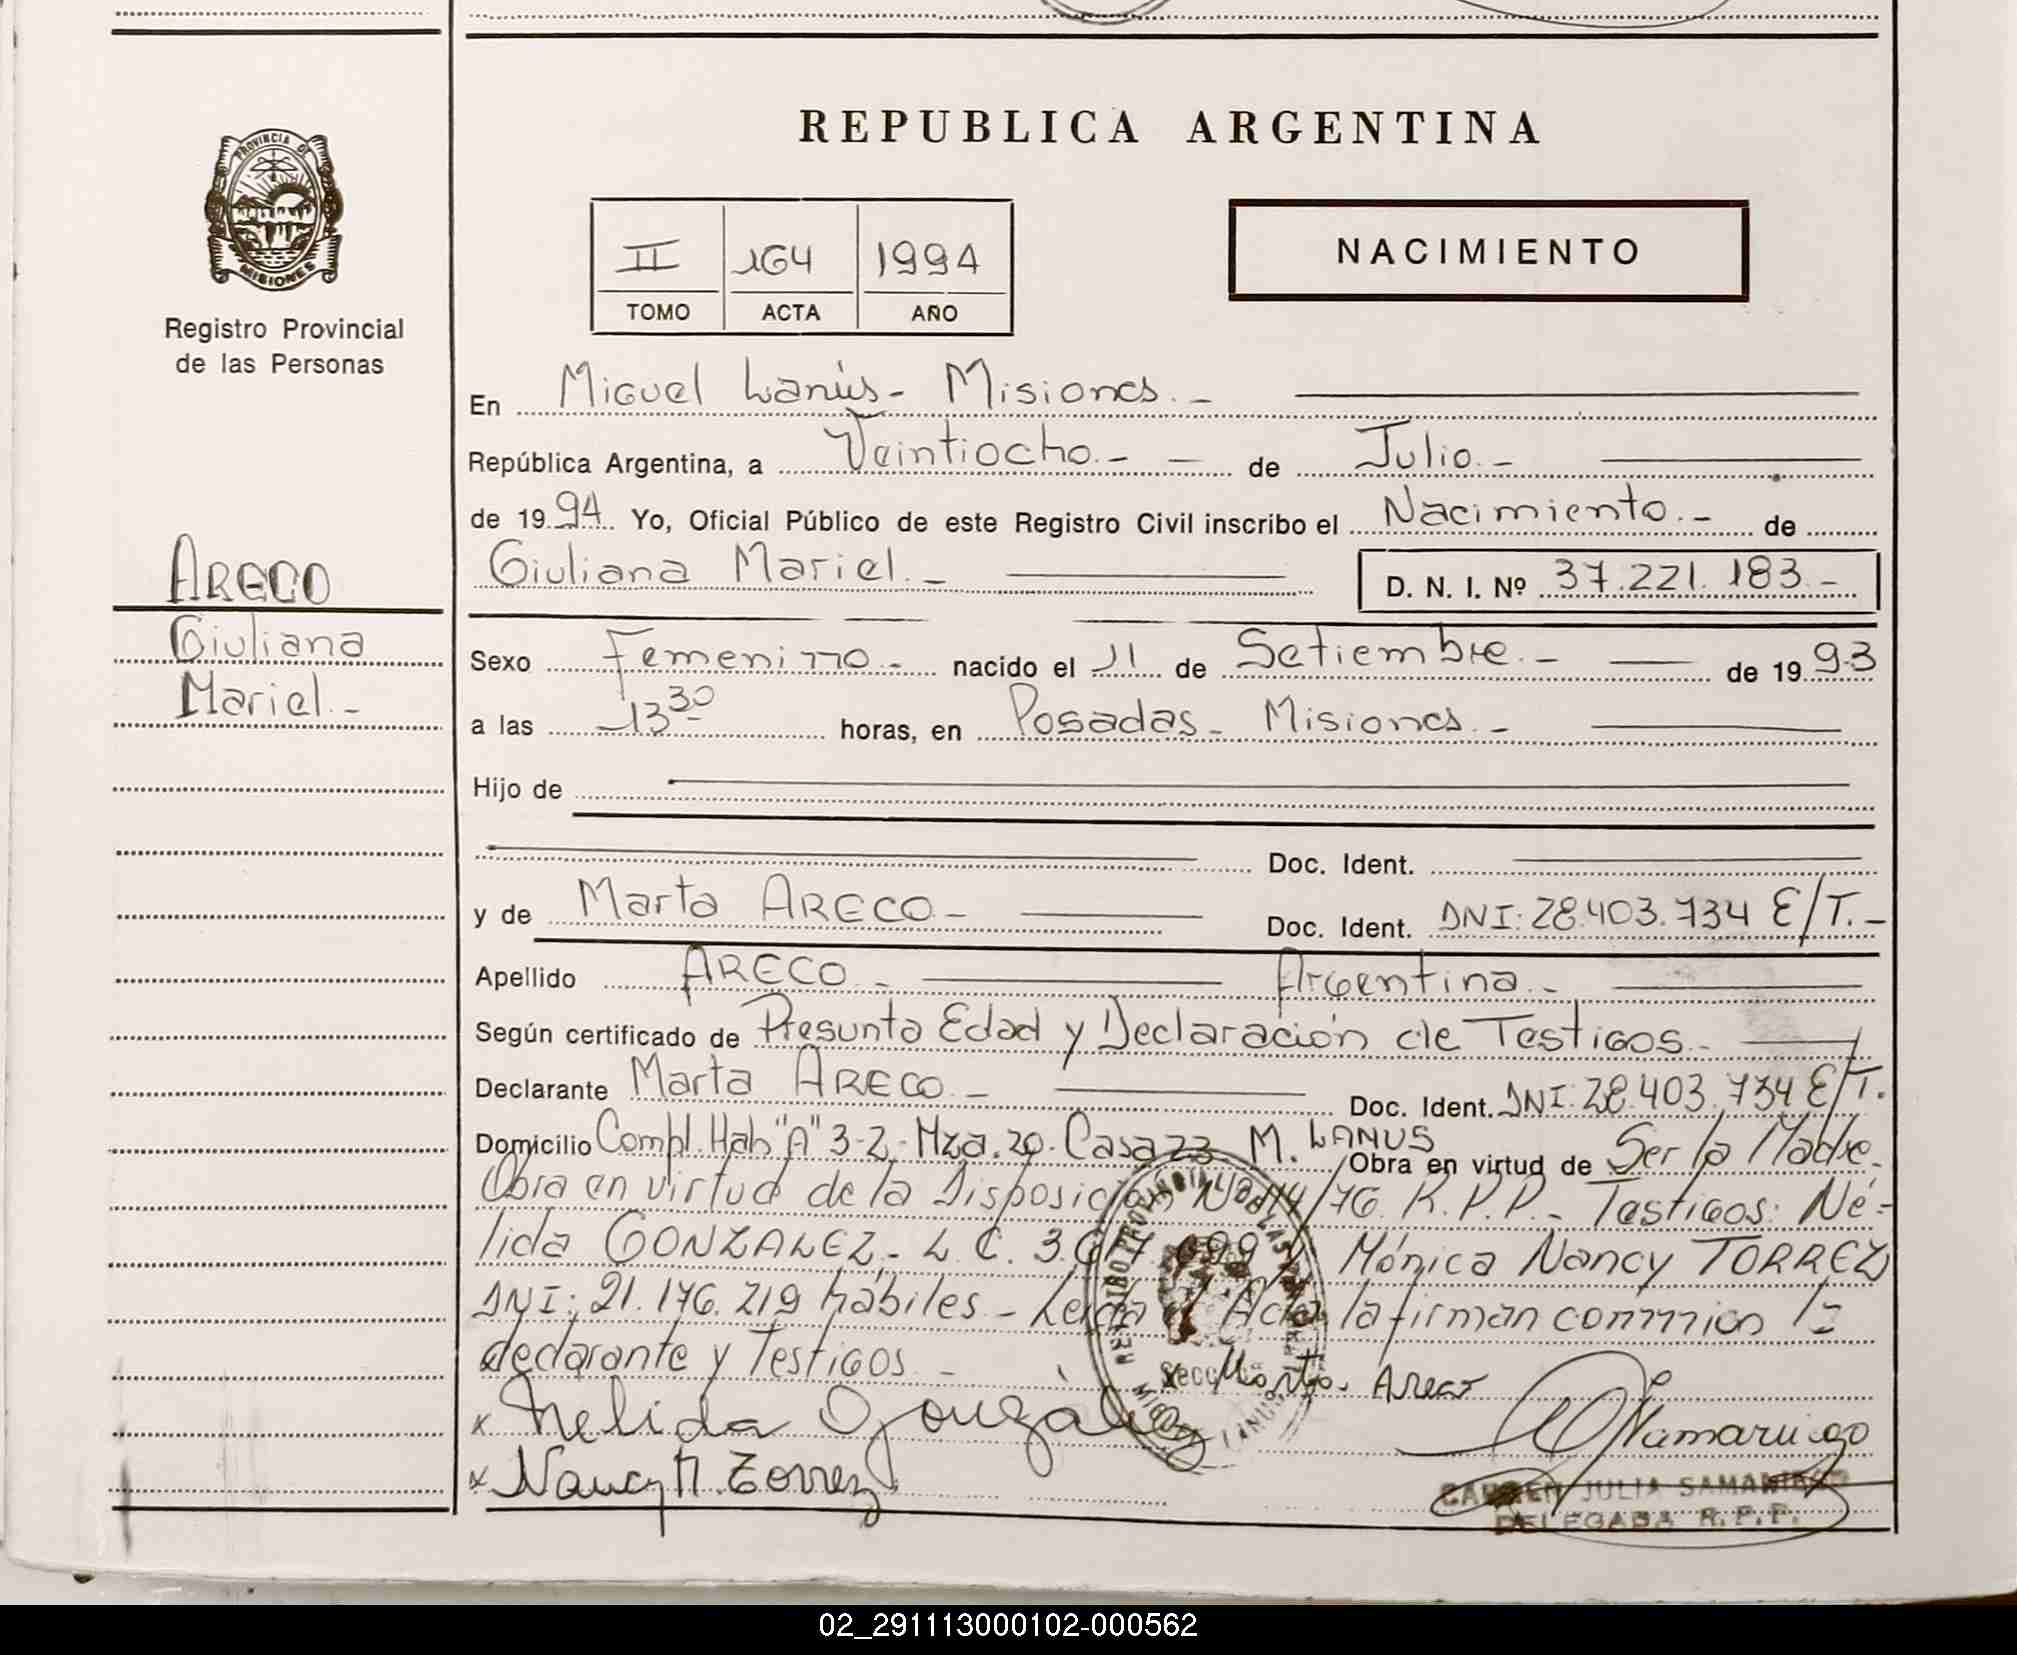 REPUBLICA ARGENTINA
PROVINCIA DE
MISIONES
Registro Provincial
de las Personas
II 164 1994
TOMO ACTA AÑO
NACIMIENTO
En Miguel Lanús - Misiones. -
República Argentina, a Veintiocho. - - de Julio. -
de 1994. Yo, Oficial Público de este Registro Civil inscribo el Nacimiento. - de
Giuliana Mariel. - D. N. I. Nº 37.221.183. -
ARECO
Giuliana
Mariel. -
Sexo Femenino. - nacido el 11 de Setiembre. - de 1993
a las 13 30 horas, en Posadas - Misiones. -
Hijo de
Doc. Ident.
y de Marta ARECO - Doc. Ident. DNI: 28.403.734 E/T. -
Apellido ARECO. - Argentina. -
Según certificado de Presunta Edad y Declaración de Testigos. -
Declarante Marta ARECO. - Doc. Ident. DNI: 28.403.734 E/T.
Domicilio Compl. Hab "A" 3-2 - Mza. 20. Casa 23 M. LANUS Obra en virtud de Ser la Madre.
Obra en virtud de la Disposición /76. R.P.P. - Testigos: Né-
lida GONZALEZ - L.C. Mónica Nancy TORREZ
DNI: 21.176.219 hábiles - Leída el Acta la firman conmigo la
declarante y Testigos. -
x Marta Areco
x Nelida González
x Nancy M. Torrez
Samaniego
CARMEN JULIA SAMANIEGO
DELEGADA R.P.P.
REGISTRO PROVINCIAL DE LAS PERSONAS
MIGUEL LANUS
02_291113000102-000562